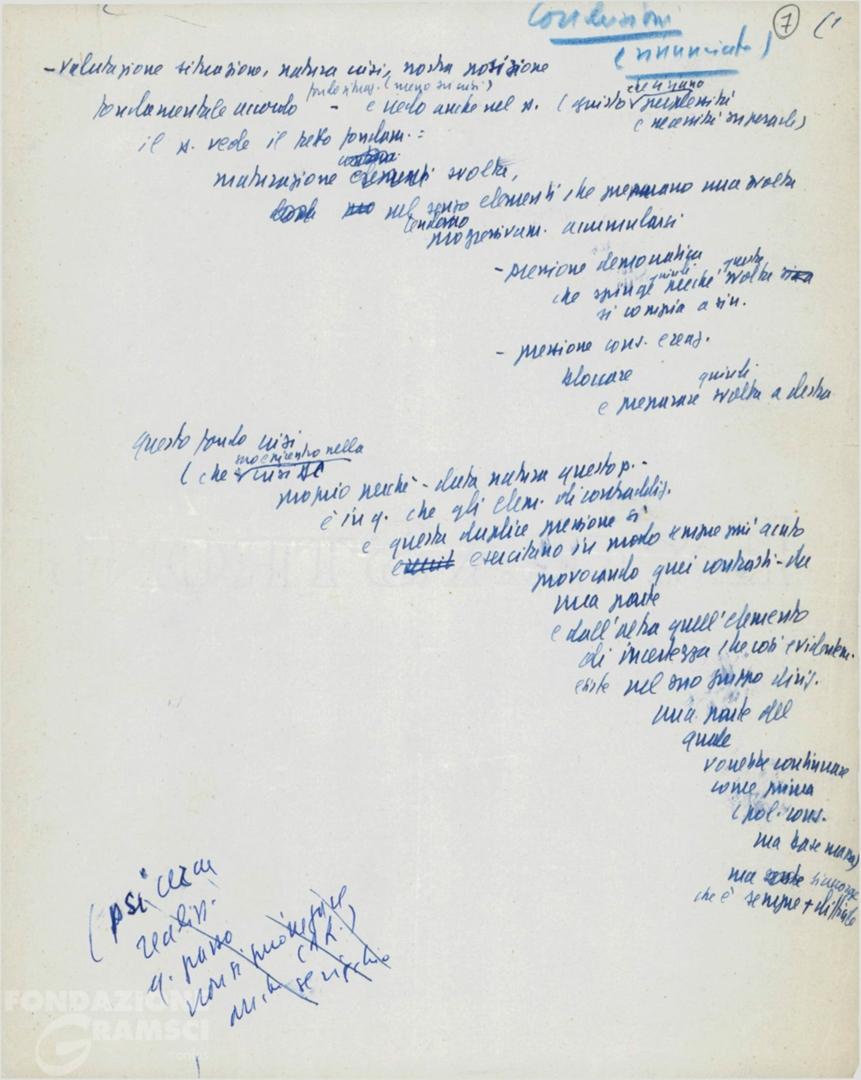 Conclusioni
(rinunciato)
7 (1
- Valutazione situazione, natura crisi, nostra posizione
fondamentale accordo - e vedo anche nel p. (giusto perplessità
e necessità superarle)
il p. vede il fatto fondam.:
maturazione elementi svolta,
nel senso elementi che preparano una svolta
tendono
progressivam. accumularsi
- pressione democratica
che spinge perché questa svolta
si compia a sin.
- pressione cons. e reaz.
bloccare quindi
e preparare svolta a destra
questo fondo crisi
(che epicentro nella
crisi DC
proprio perché - data natura questo p. -
è in q. che gli elem. di contraddiz.
e questa duplice pressione si
esercitano in modo sempre più acuto
provocando quei contrasti - da
una parte
e dall'altra quell'elemento
di incertezza che così evidentem.
esiste nel suo gruppo dirig.
una parte del
quale
vorrebbe continuare
come prima
(pol. cons.
ma base massa)
ma si accorge
che è sempre + difficile
(psi cerca
realizz.
q. passo
non si può negare
anche se rischio
FONDAZIONE
GRAMSCI
onlus